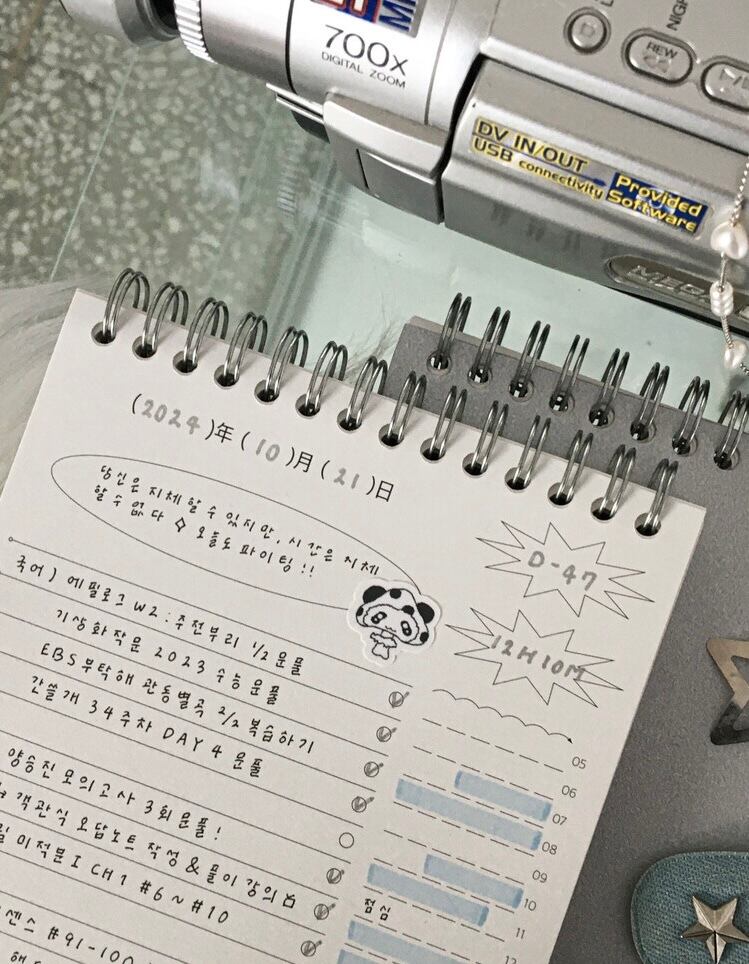 700x
DIGITAL ZOOM
REW
DV IN/OUT
USB connectivity
Provided
Software
(2024)年(10)月(21)日
당신은 지체할 수 있지만, 시간은 지체
할 수 없다 ◇ 오늘도 파이팅!!
D-47
12H 10M
국어) 에필로그 W2 : 주전부리 1/2 운풀
기상화작문 2023 수능 운풀
EBS부탁해 관동별곡 2/2 복습하기
간쓸개 34주차 DAY 4 운풀
양승진 모의고사 3회 운풀!
객관식 오답노트 작성 & 풀이 강의
미적분I CH1 #6~#10
센스 #91-100
05
06
07
08
09
10
점심
11
12